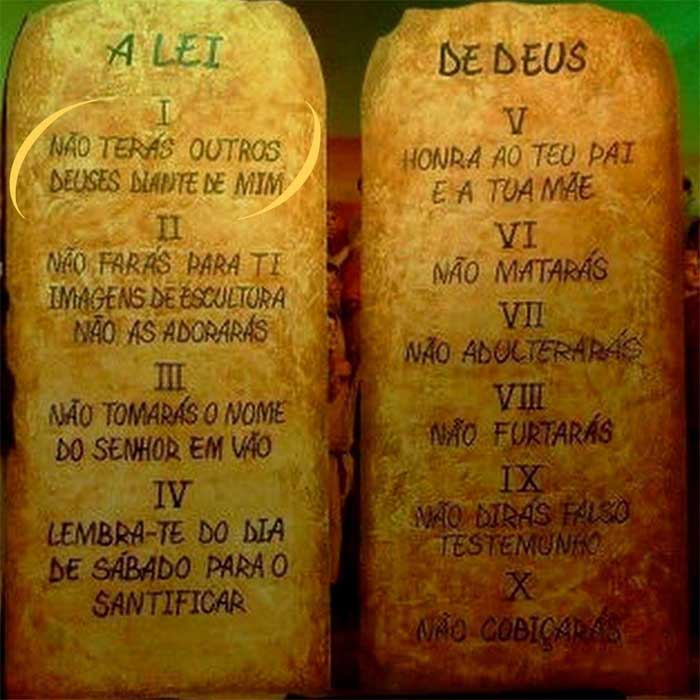 A LEI
I
NÃO TERÁS OUTROS
DEUSES DIANTE DE MIM
II
NÃO FARÁS PARA TI
IMAGENS DE ESCULTURA
NÃO AS ADORARÁS
III
NÃO TOMARÁS O NOME
DO SENHOR EM VÃO
IV
LEMBRA-TE DO DIA
DE SÁBADO PARA O
SANTIFICAR
DE DEUS
V
HONRA AO TEU PAI
E A TUA MÃE
VI
NÃO MATARÁS
VII
NÃO ADULTERARÁS
VIII
NÃO FURTARÁS
IX
NÃO DIRÁS FALSO
TESTEMUNHO
X
NÃO COBIÇARÁS